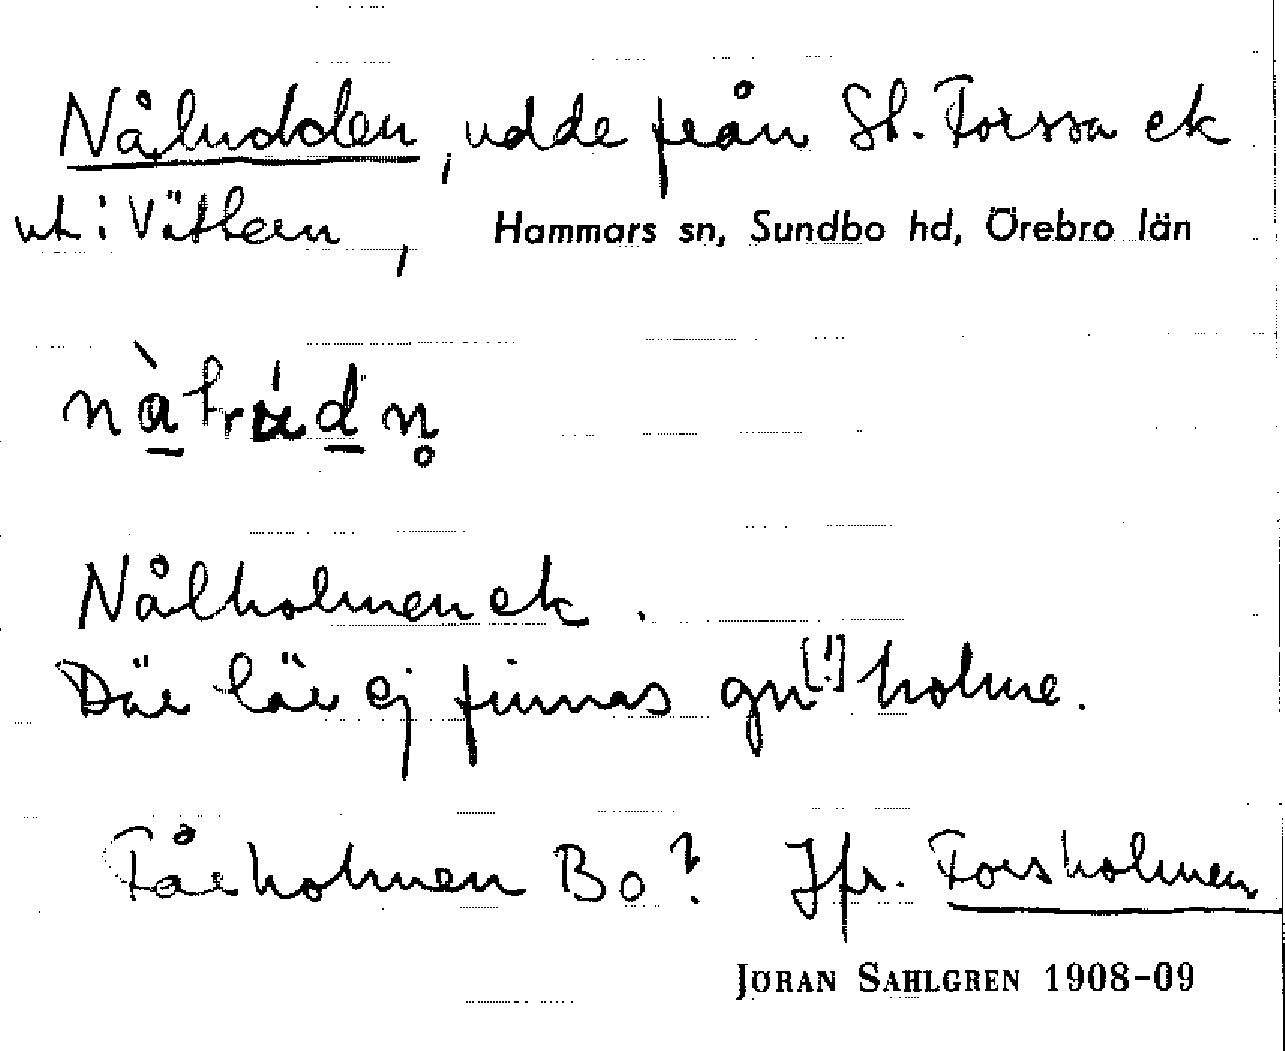 Nåludden, udde från St. Forssa ek
ut i Vättern, Hammars sn, Sundbo hd, Örebro län
Nålholmen ek.
Där lär ej finnas gn [!] holme.
Fårholmen Bo? Jfr. Forsholmen
JÖRAN SAHLGREN 1908-09